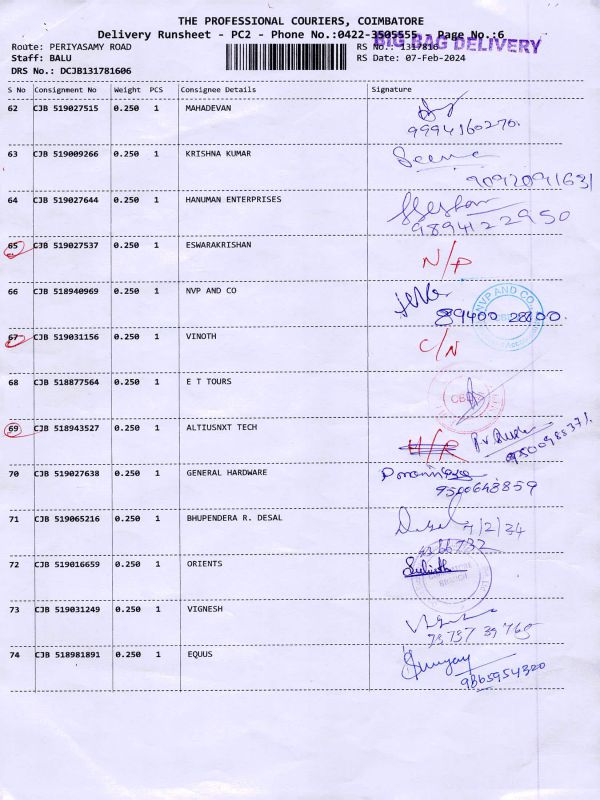 THE PROFESSIONAL COURIERS, COIMBATORE
Delivery Runsheet - PC2 - Phone No.:0422-3505555, Page No.:6
BIG BAG DELIVERY
Route: PERIYASAMY ROAD RS No.: 1317816
Staff: BALU RS Date: 07-Feb-2024
DRS No.: DCJB131781606
S No Consignment No Weight PCS Consignee Details Signature
62 CJB 519027515 0.250 1 MAHADEVAN
9994160270.
63 CJB 519009266 0.250 1 KRISHNA KUMAR
9092091631
64 CJB 519027644 0.250 1 HANUMAN ENTERPRISES
9894122950
65 CJB 519027537 0.250 1 ESWARAKRISHAN
N/P
66 CJB 518940969 0.250 1 NVP AND CO
NVP AND CO
89400 28800.
67 CJB 519031156 0.250 1 VINOTH
C/N
68 CJB 518877564 0.250 1 E T TOURS
CBE
69 CJB 518943527 0.250 1 ALTIUSNXT TECH
70 CJB 519027638 0.250 1 GENERAL HARDWARE
9500648859
71 CJB 519065216 0.250 1 BHUPENDERA R. DESAL
72 CJB 519016659 0.250 1 ORIENTS
73 CJB 519031249 0.250 1 VIGNESH
74 CJB 518981891 0.250 1 EQUUS
9865954320